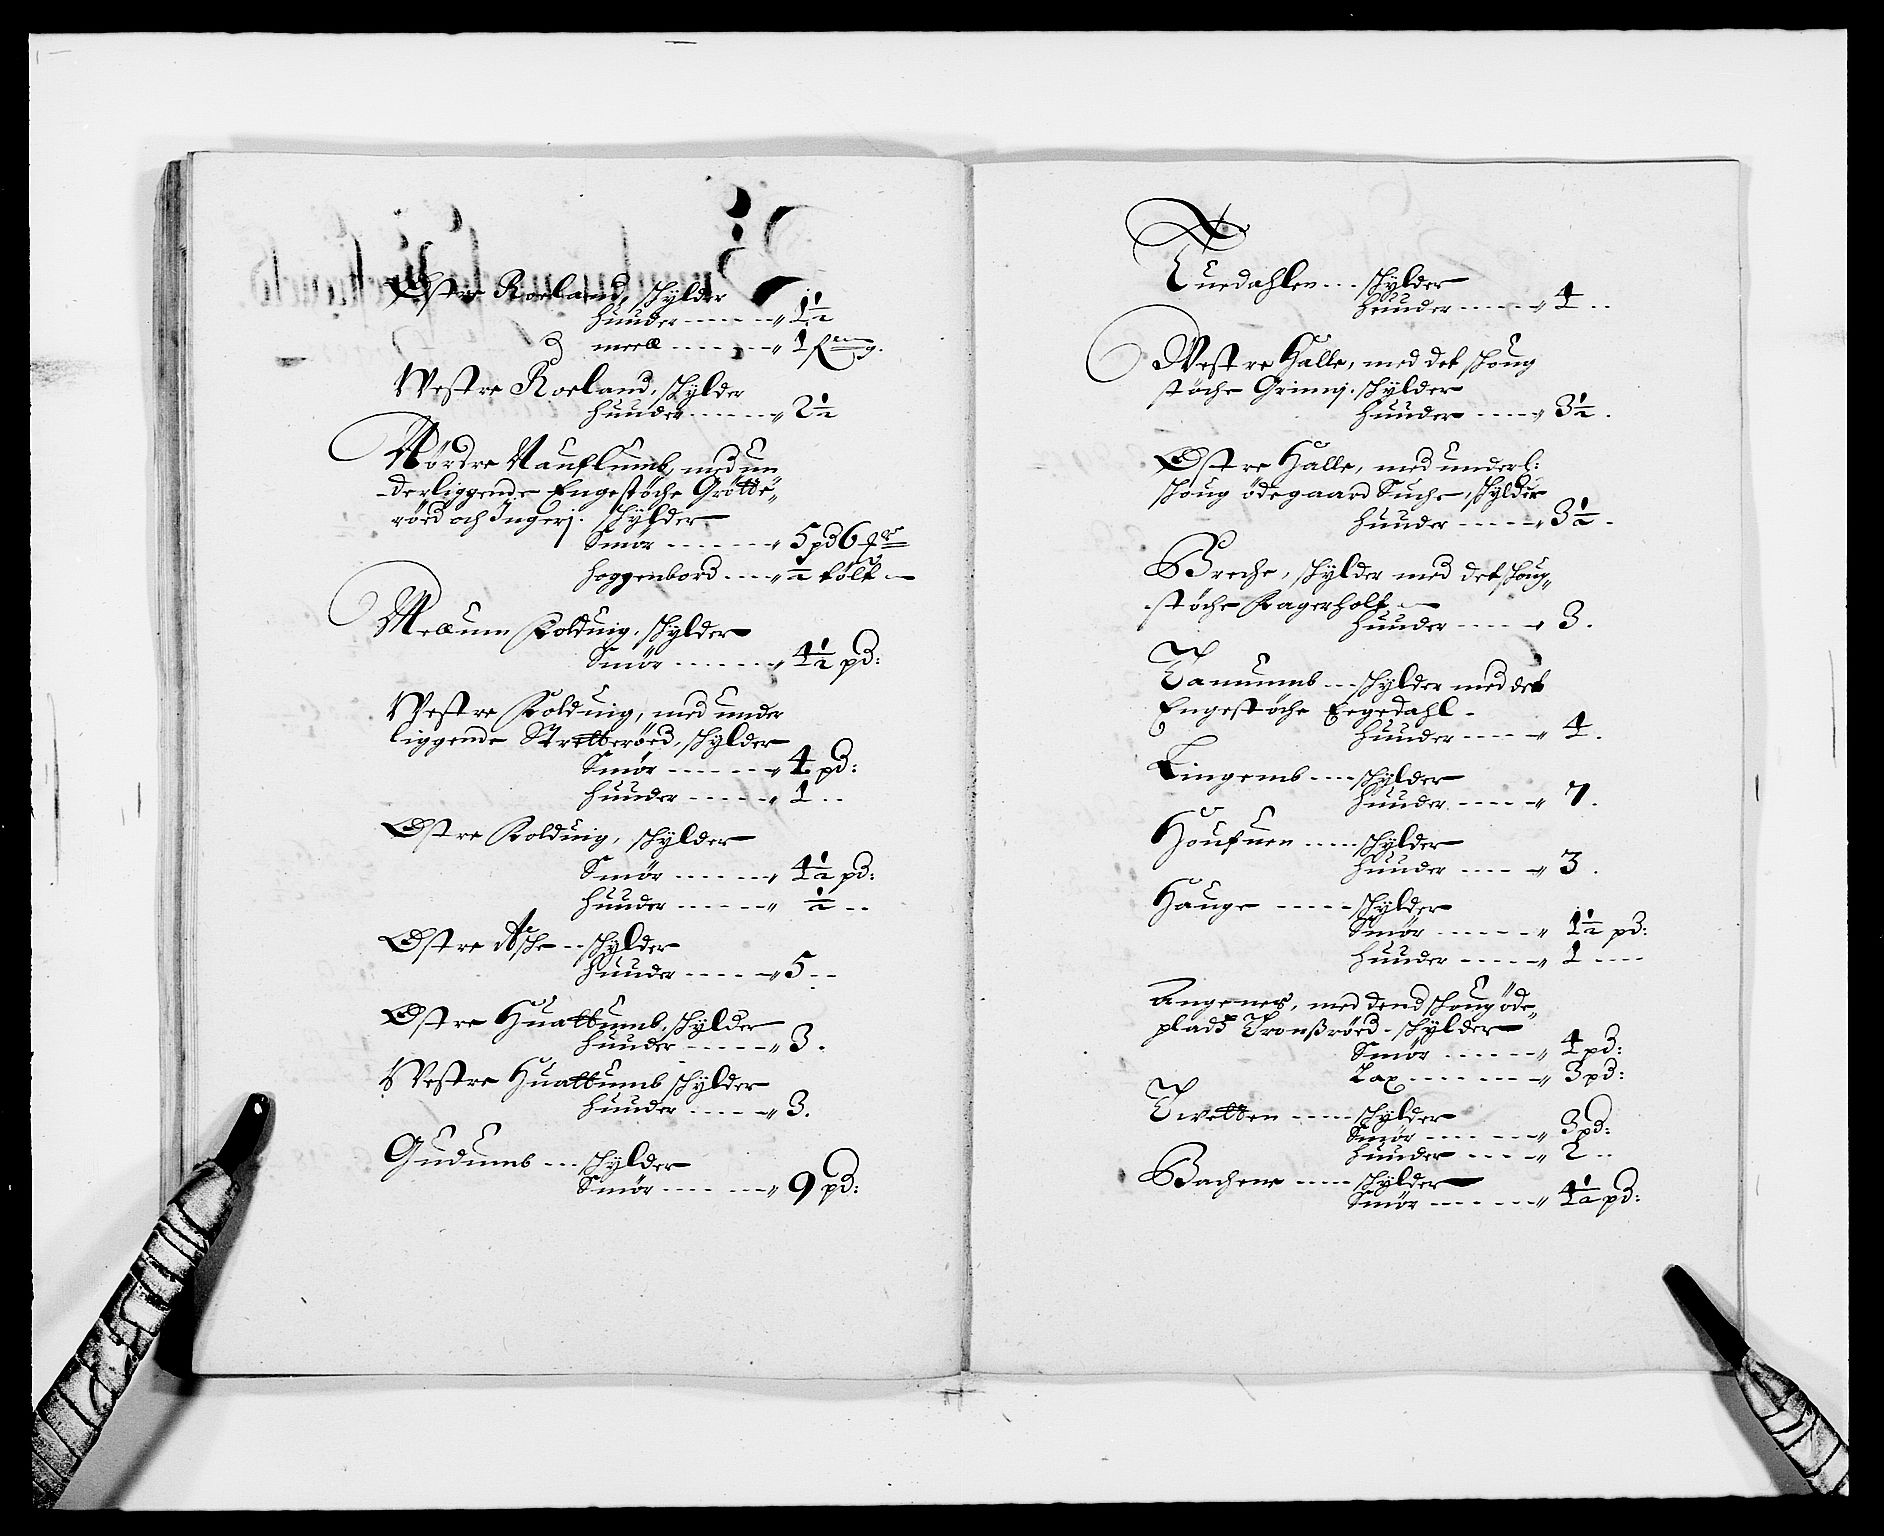 Østre Roeland, schylder
huuder ------ „ 1½
meell ------ „ 1
Westre Roeland, schylder
huuder ------ „ 2½
Nørdre Nauflumb, med un
derliggende Engestøche Grøtte„
røed och Ingerj. schylder
Smør ------ „ 5 pd 6
hoggenbord ---- „ ½ tølt
Mellum Kolduig, schylder
Smør ------ „ 4½ pd:
Westre Kolduig, med under
liggende Stretterøed, schylder
Smør ------ „ 4 pd:
huuder ------ „ 1 --
Østre Kolduig, schylder
Smør ------ „ 4½ pd:
huuder ------ „ ½ --
Østre Asche -- schylder
huuder ------ „ 5 --
Østre Huattumb, schylder
huuder ------ „ 3.
Westre Huattumb schylder
huuder ------ „ 3.
Gudumb --- schylder
Smør ------ „ 9 pd:
Tuedahlen --- schylder
huuder ------ „ 4 --
Westre Halle, med det schoug
støche Grimj. schylder
huuder ----- „ 3½.
Østre Halle, med underl:
schoug ødegaard Suche, schylder
huuder ----- „ 3½ -
Breche, schylder med det schoug„
støche Kagerholt
huuder ----- „ 3.
Tanumb --- schylder med det
Engestøche Eegedahl -
huuder ----- „ 4.
Lingemb ---- schylder
huuder ----- „ 7.
Houfuen ----- schylder
huuder ----- „ 3.
Hauge ----- schylder
Smør ------ „ 1½ pd:
huuder ----- „ 1 ----
Angenes, med dend schoug øde„
pladtz Tronßrøed - schylder
Smør ------ „ 4 pd:
Lax ------- „ 3 pd:
Twetten ----- schylder
Smør ------ „ 3 pd:
huuder ---- „ 2 --
Bachene ----- schylder
Smør ------ „ 4½ pd: